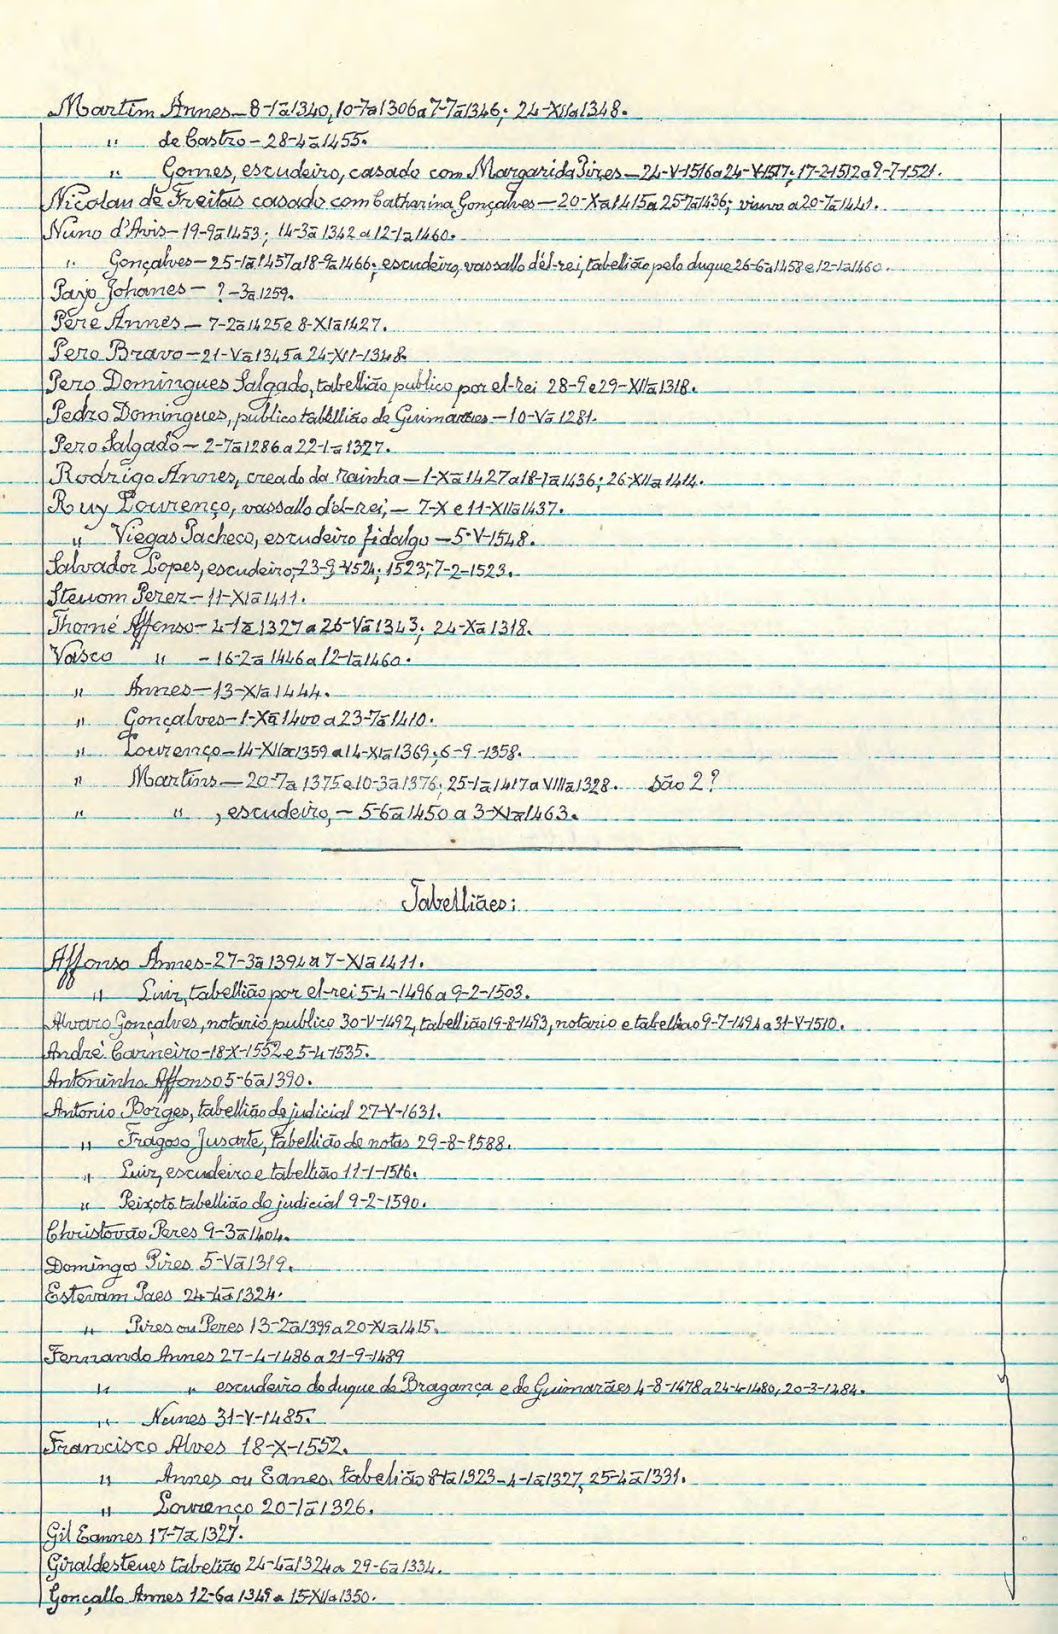 Martim Annes-8-1ª1340, 10-7ª1306 a 7-7ª1346; 24-XIIª1348.
" de Castro-28-4ª1455.
" Gomes, escudeiro, casado com Margarida Pires-24-V-1516 a 24-V-1517; 17-2-1512 a 9-7-1521.
Nicolau de Freitas casado com Catharina Gonçalves-20-Xª1415 a 25-7ª1436; viuvo a 20-7ª1441.
Nuno d'Avis-19-9ª1453; 14-3ª1342 a 12-1ª1460.
" Gonçalves-25-1ª1457 a 18-9ª1466; escudeiro, vassallo d'el-rei, tabelião pelo duque 26-6ª1458 e 12-1ª1460.
Payo Johanes- ?-3ª1259.
Pere Annes-7-2ª1425 e 8-XIª1427.
Pero Bravo-21-Vª1345 a 24-XII-1348.
Pero Domingues Salgado, tabellião publico por el-rei 28-9 e 29-XIIª1318.
Pedro Domingues, publico tabellião de Guimarães-10-Vª1281.
Pero Salgado-2-7ª1286 a 22-1-ª1327.
Rodrigo Annes, creado da rainha-1-Xª1427 a 18-1ª1436; 26-XIIª1414.
Ruy Lourenço, vassallo d'el-rei,-7-X e 11-XIIª1437.
" Viegas Pacheco, escudeiro fidalgo-5-V-1548.
Salvador Lopes, escudeiro,-23-9-1524; 1523; 7-2-1523.
Stevom Perez-11-XIª1411.
Thomé Affonso-4-1ª1327 a 26-Vª1343; 24-Xª1318.
Vasco " -16-2ª1446 a 12-1ª1460.
" Annes-13-XIª1444.
" Gonçalves-1-Xª1400 a 23-7ª1410.
" Lourenço-14-XIIª1359 a 14-XIª1369; 6-9-1358.
" Martins-20-7ª1375 e 10-3ª1376; 25-1ª1417 a VIIIª1328. São 2?
" " , escudeiro,-5-6ª1450 a 3-XIª1463.
Tabelliães:
Affonso Annes-27-3ª1394 a 7-XIª1411.
" Luiz, tabellião por el-rei 5-4-1496 a 9-2-1503.
Alvaro Gonçalves, notario publico 30-V-1492, tabellião 19-8-1493, notario e tabellião 9-7-1494 a 31-V-1510.
André Carneiro-18-X-1552 e 5-4-1535.
Antoninho Affonso 5-6ª1390.
Antonio Borges, tabellião do judicial 27-V-1631.
" Fragoso Jusarte, tabellião de notas 29-8-1588.
" Luiz, escudeiro e tabellião 11-1-1516.
" Peixoto tabellião do judicial 9-2-1590.
Christovão Peres 9-3ª1404.
Domingos Pires 5-Vª1319.
Estevam Paes 24-4ª1324.
" Pires ou Peres 13-2ª1399 a 20-XIª1415.
Fernando Annes 27-4-1486 a 21-9-1489
" " escudeiro do duque de Bragança e de Guimarães 4-8-1478 a 24-4-1480, 20-3-1484.
" Nunes 31-V-1485.
Francisco Alves 18-X-1552.
" Annes ou Eanes, tabelião 8-1ª1323-4-1ª1327, 25-4ª1331.
" Lourenço 20-1ª1326.
Gil Eannes 17-7ª1327.
Giraldesteues tabelião 24-4ª1324 a 29-6ª1334.
Gonçallo Annes 12-6ª1349 a 15-XIIª1350.